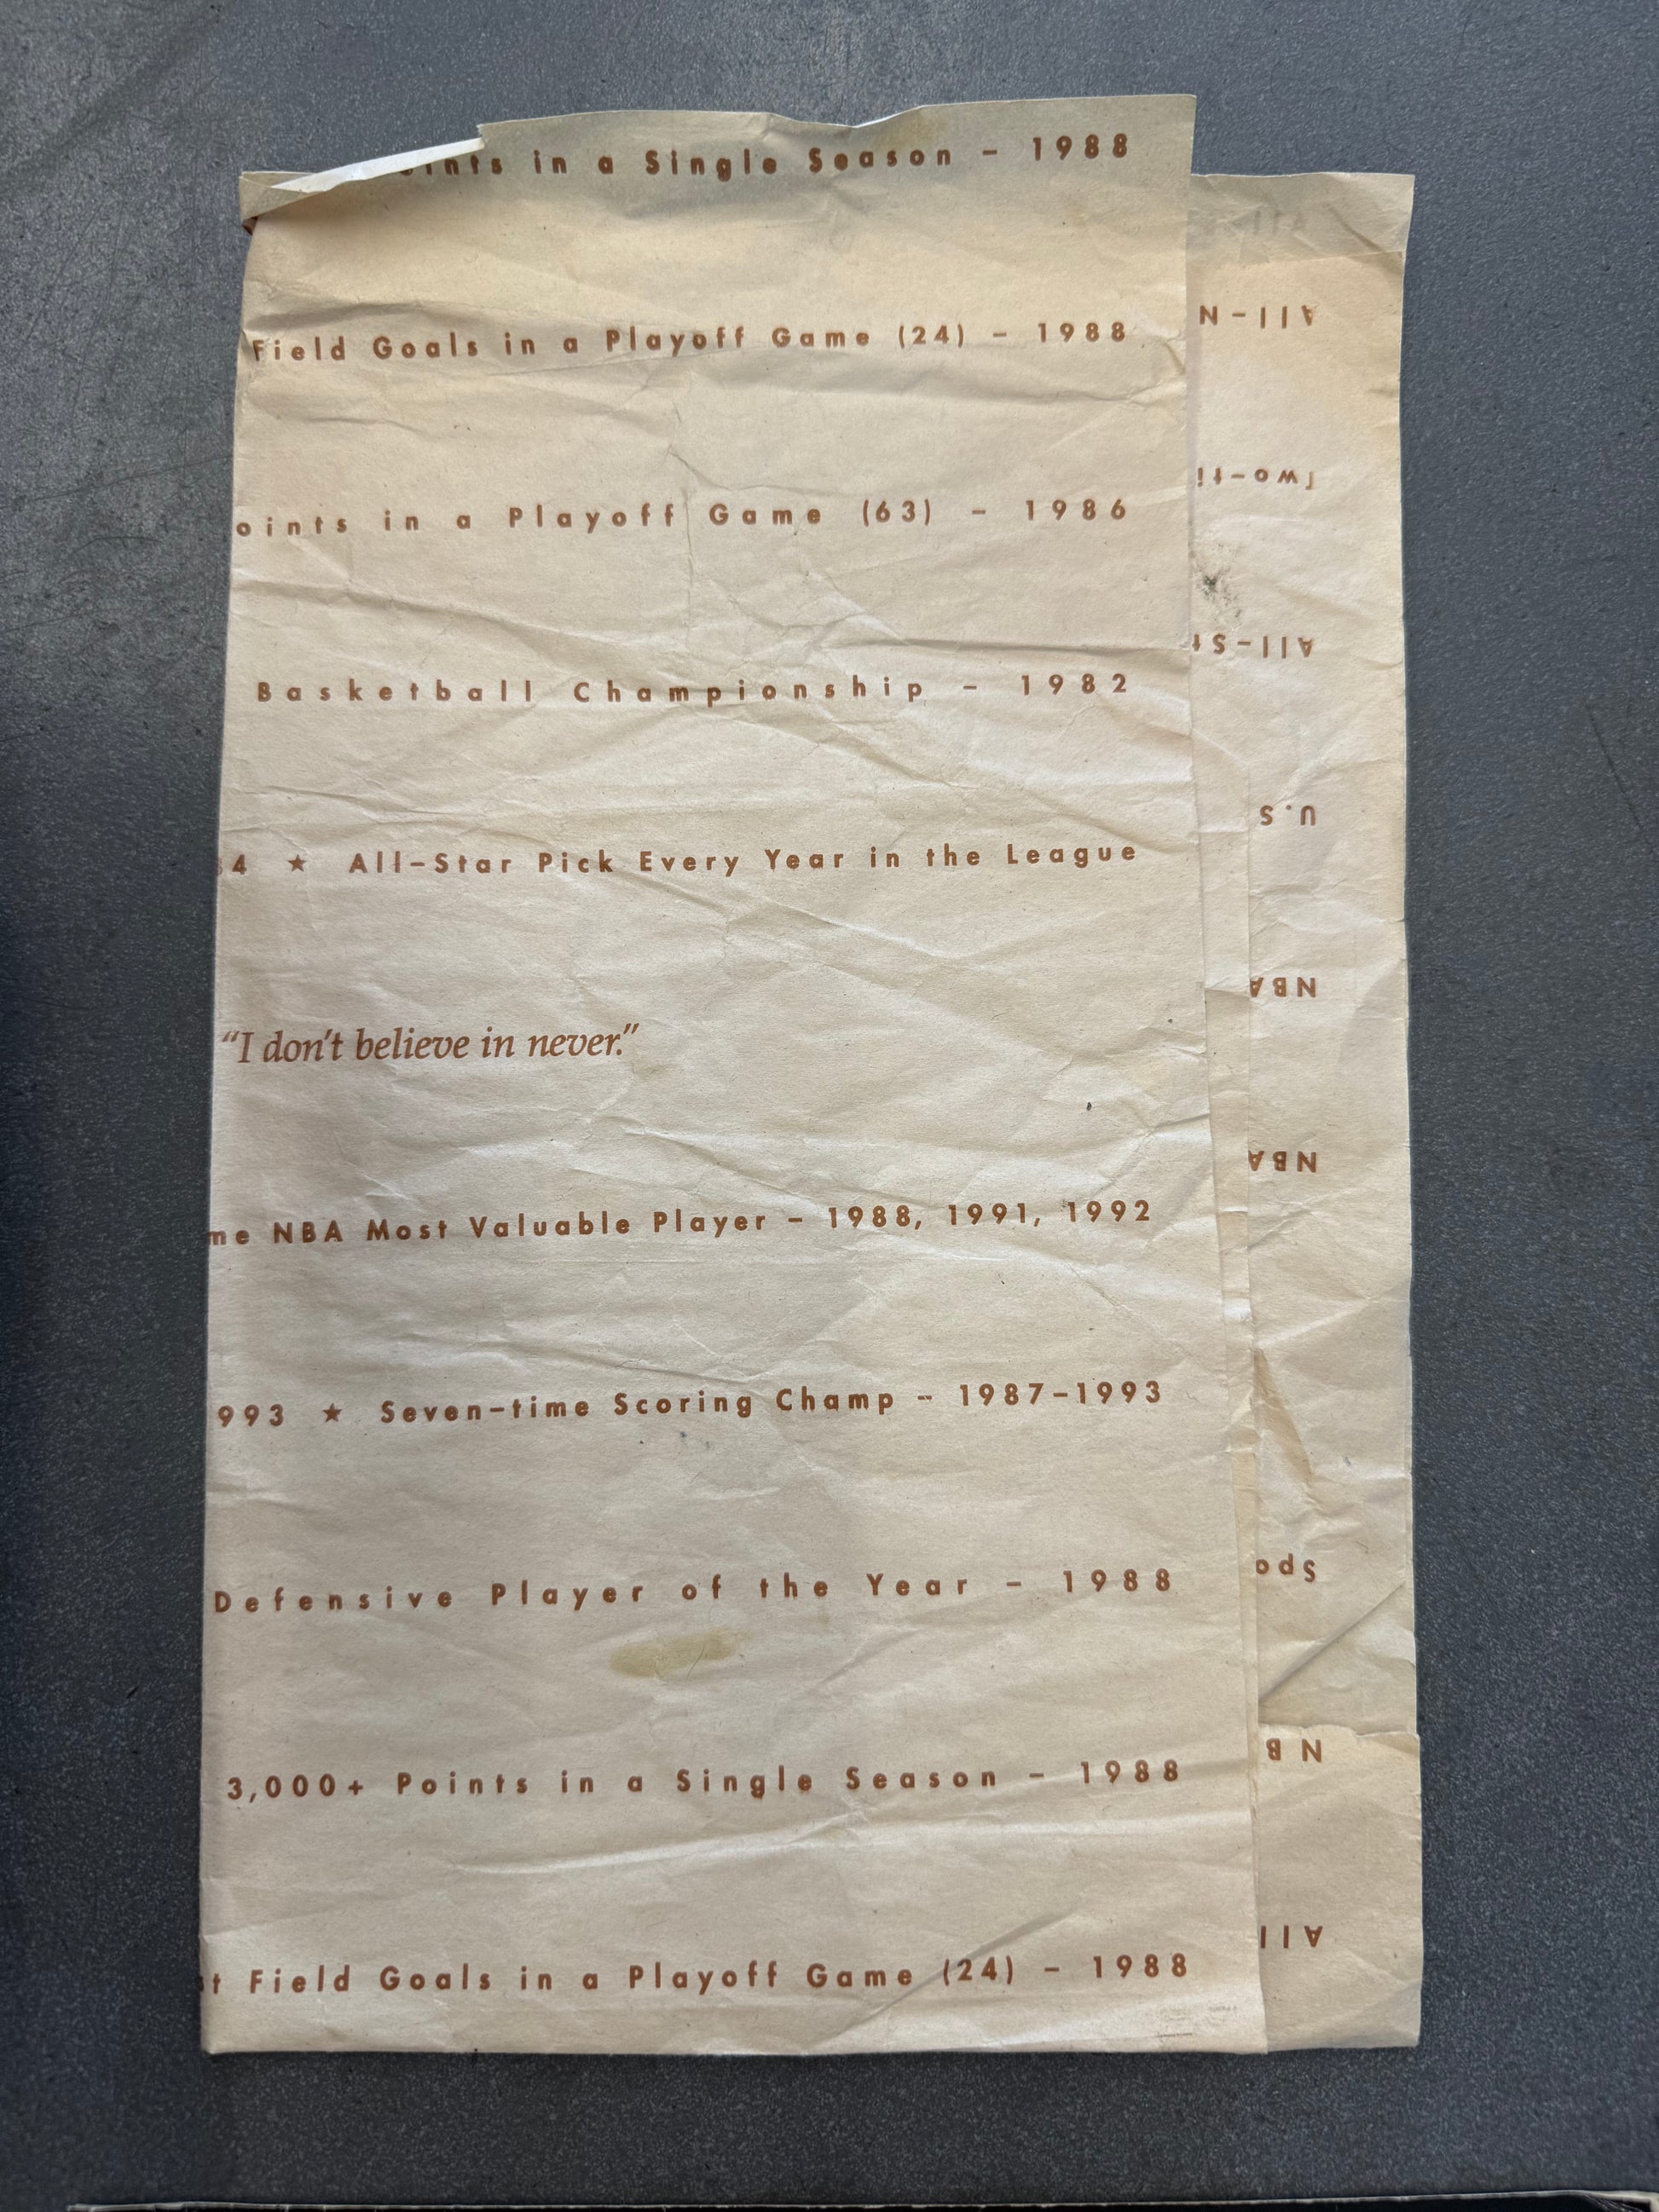 in a Single Season – 1988
Field Goals in a Playoff Game (24) – 1988
oints in a Playoff Game (63) – 1986
Basketball Championship – 1982
4 ★ All–Star Pick Every Year in the League
“I don’t believe in never.”
me NBA Most Valuable Player – 1988, 1991, 1992
993 ★ Seven–time Scoring Champ – 1987–1993
Defensive Player of the Year – 1988
3,000+ Points in a Single Season – 1988
t Field Goals in a Playoff Game (24) – 1988
All
NB
Spo
NBA
NBA
U.S
All–St
Two–ti
All–N